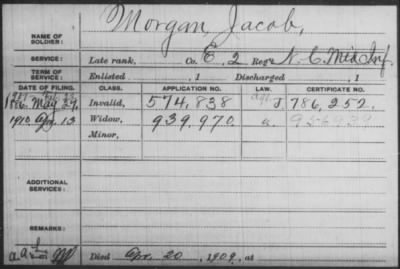 Morgan, Jacob,
NAME OF SOLDIER:
SERVICE: Late rank, Co. E, 2 Reg't N. C. Mtd Inf.
TERM OF SERVICE: Enlisted , 1 Discharged , 1
DATE OF FILING. CLASS. APPLICATION NO. LAW. CERTIFICATE NO.
May 27, Invalid, 574,838 J. 786,252.
1910 Apr. 13 Widow, 939,970.
Minor,
ADDITIONAL SERVICES:
REMARKS:
Died Apr. 20, 1909, at